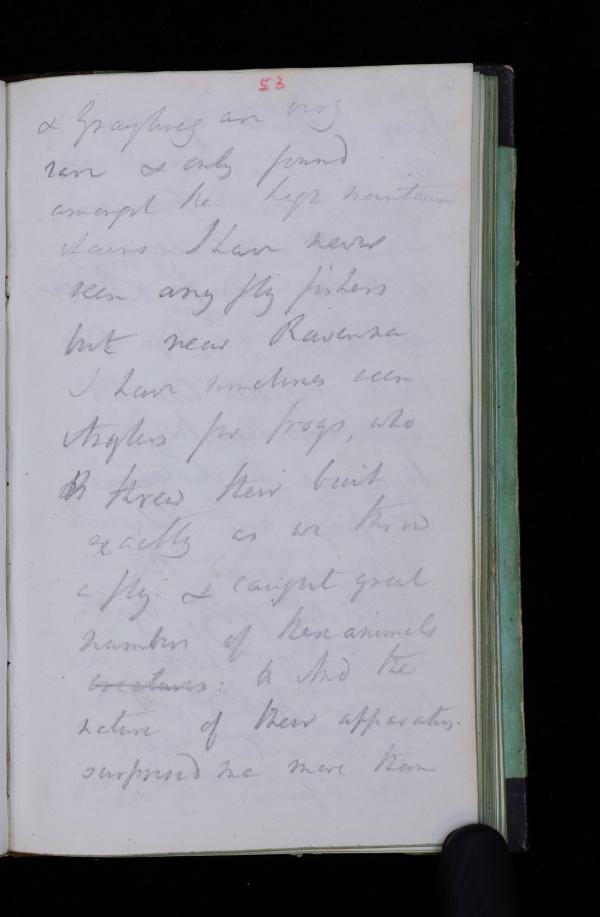 53
& Grayling are very
rare & only found
amongst the high mountain
chains I have never
seen any fly fishers
but near Ravenna
I have sometimes seen
Anglers for frogs, who
threw their bait
exactly as we throw
a fly & caught great
numbers of these animals
creatures: And the
nature of their apparatus
surprised me more than